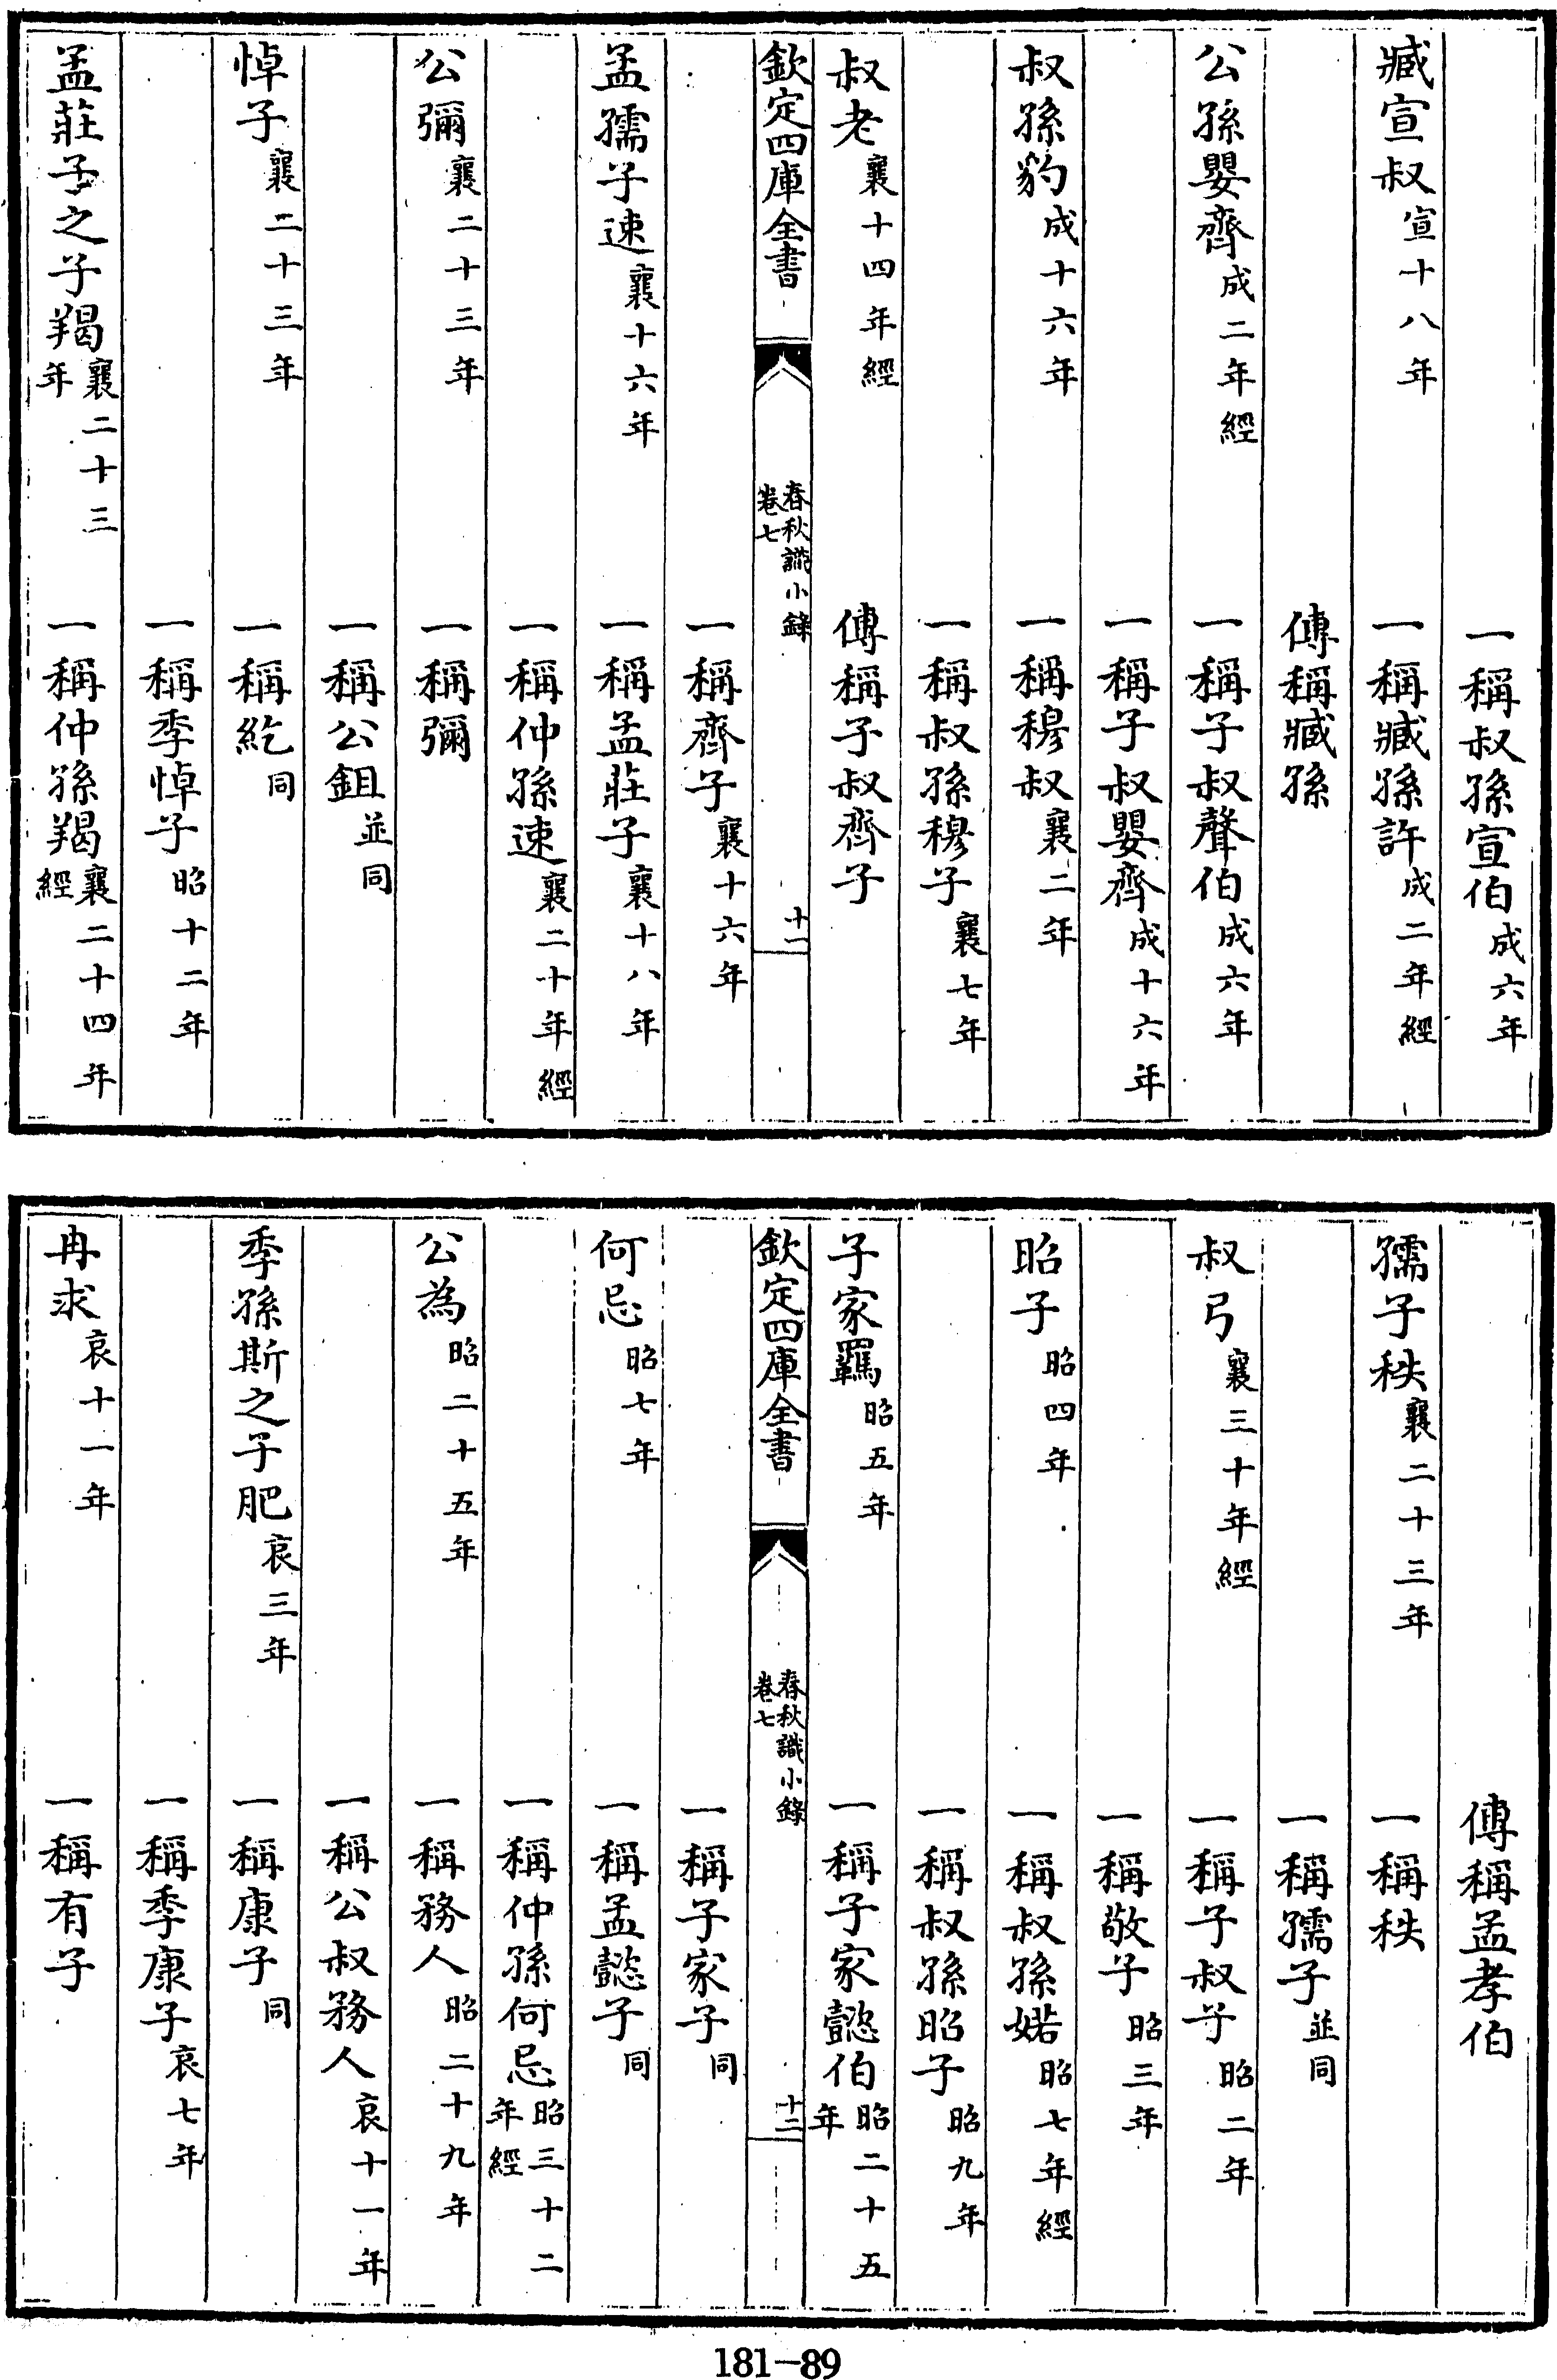 一稱叔孫宣伯成六年
臧宣叔宣十八年 一稱臧孫許成二年經
傳稱臧孫
公孫嬰齊成二年經 一稱子叔聲伯成六年
一稱子叔嬰齊成十六年
叔孫豹成十六年 一稱穆叔襄二年
一稱叔孫穆子襄七年
叔老襄十四年經 傳稱子叔齊子
欽定四庫全書 春秋識小錄卷七 十一
一稱齊子襄十六年
孟孺子速襄十六年 一稱孟莊子襄十八年
一稱仲孫速襄二十年經
公彌襄二十三年 一稱彌
一稱公鉏並同
悼子襄二十三年 一稱紇同
一稱季悼子昭十二年
孟莊子之子羯襄二十三年 一稱仲孫羯襄二十四年經
傳稱孟孝伯
孺子秩襄二十三年 一稱秩
一稱孺子並同
叔弓襄三十年經 一稱子叔子昭二年
一稱敬子昭三年
昭子昭四年 一稱叔孫婼昭七年經
一稱叔孫昭子昭九年
子家羈昭五年 一稱子家懿伯昭二十五年
欽定四庫全書 春秋識小錄卷七 十二
一稱子家子同
何忌昭七年 一稱孟懿子同
一稱仲孫何忌昭三十二年經
公為昭二十五年 一稱務人昭二十九年
一稱公叔務人哀十一年
季孫斯之子肥哀三年 一稱康子同
一稱季康子哀七年
冉求哀十一年 一稱有子
181-89